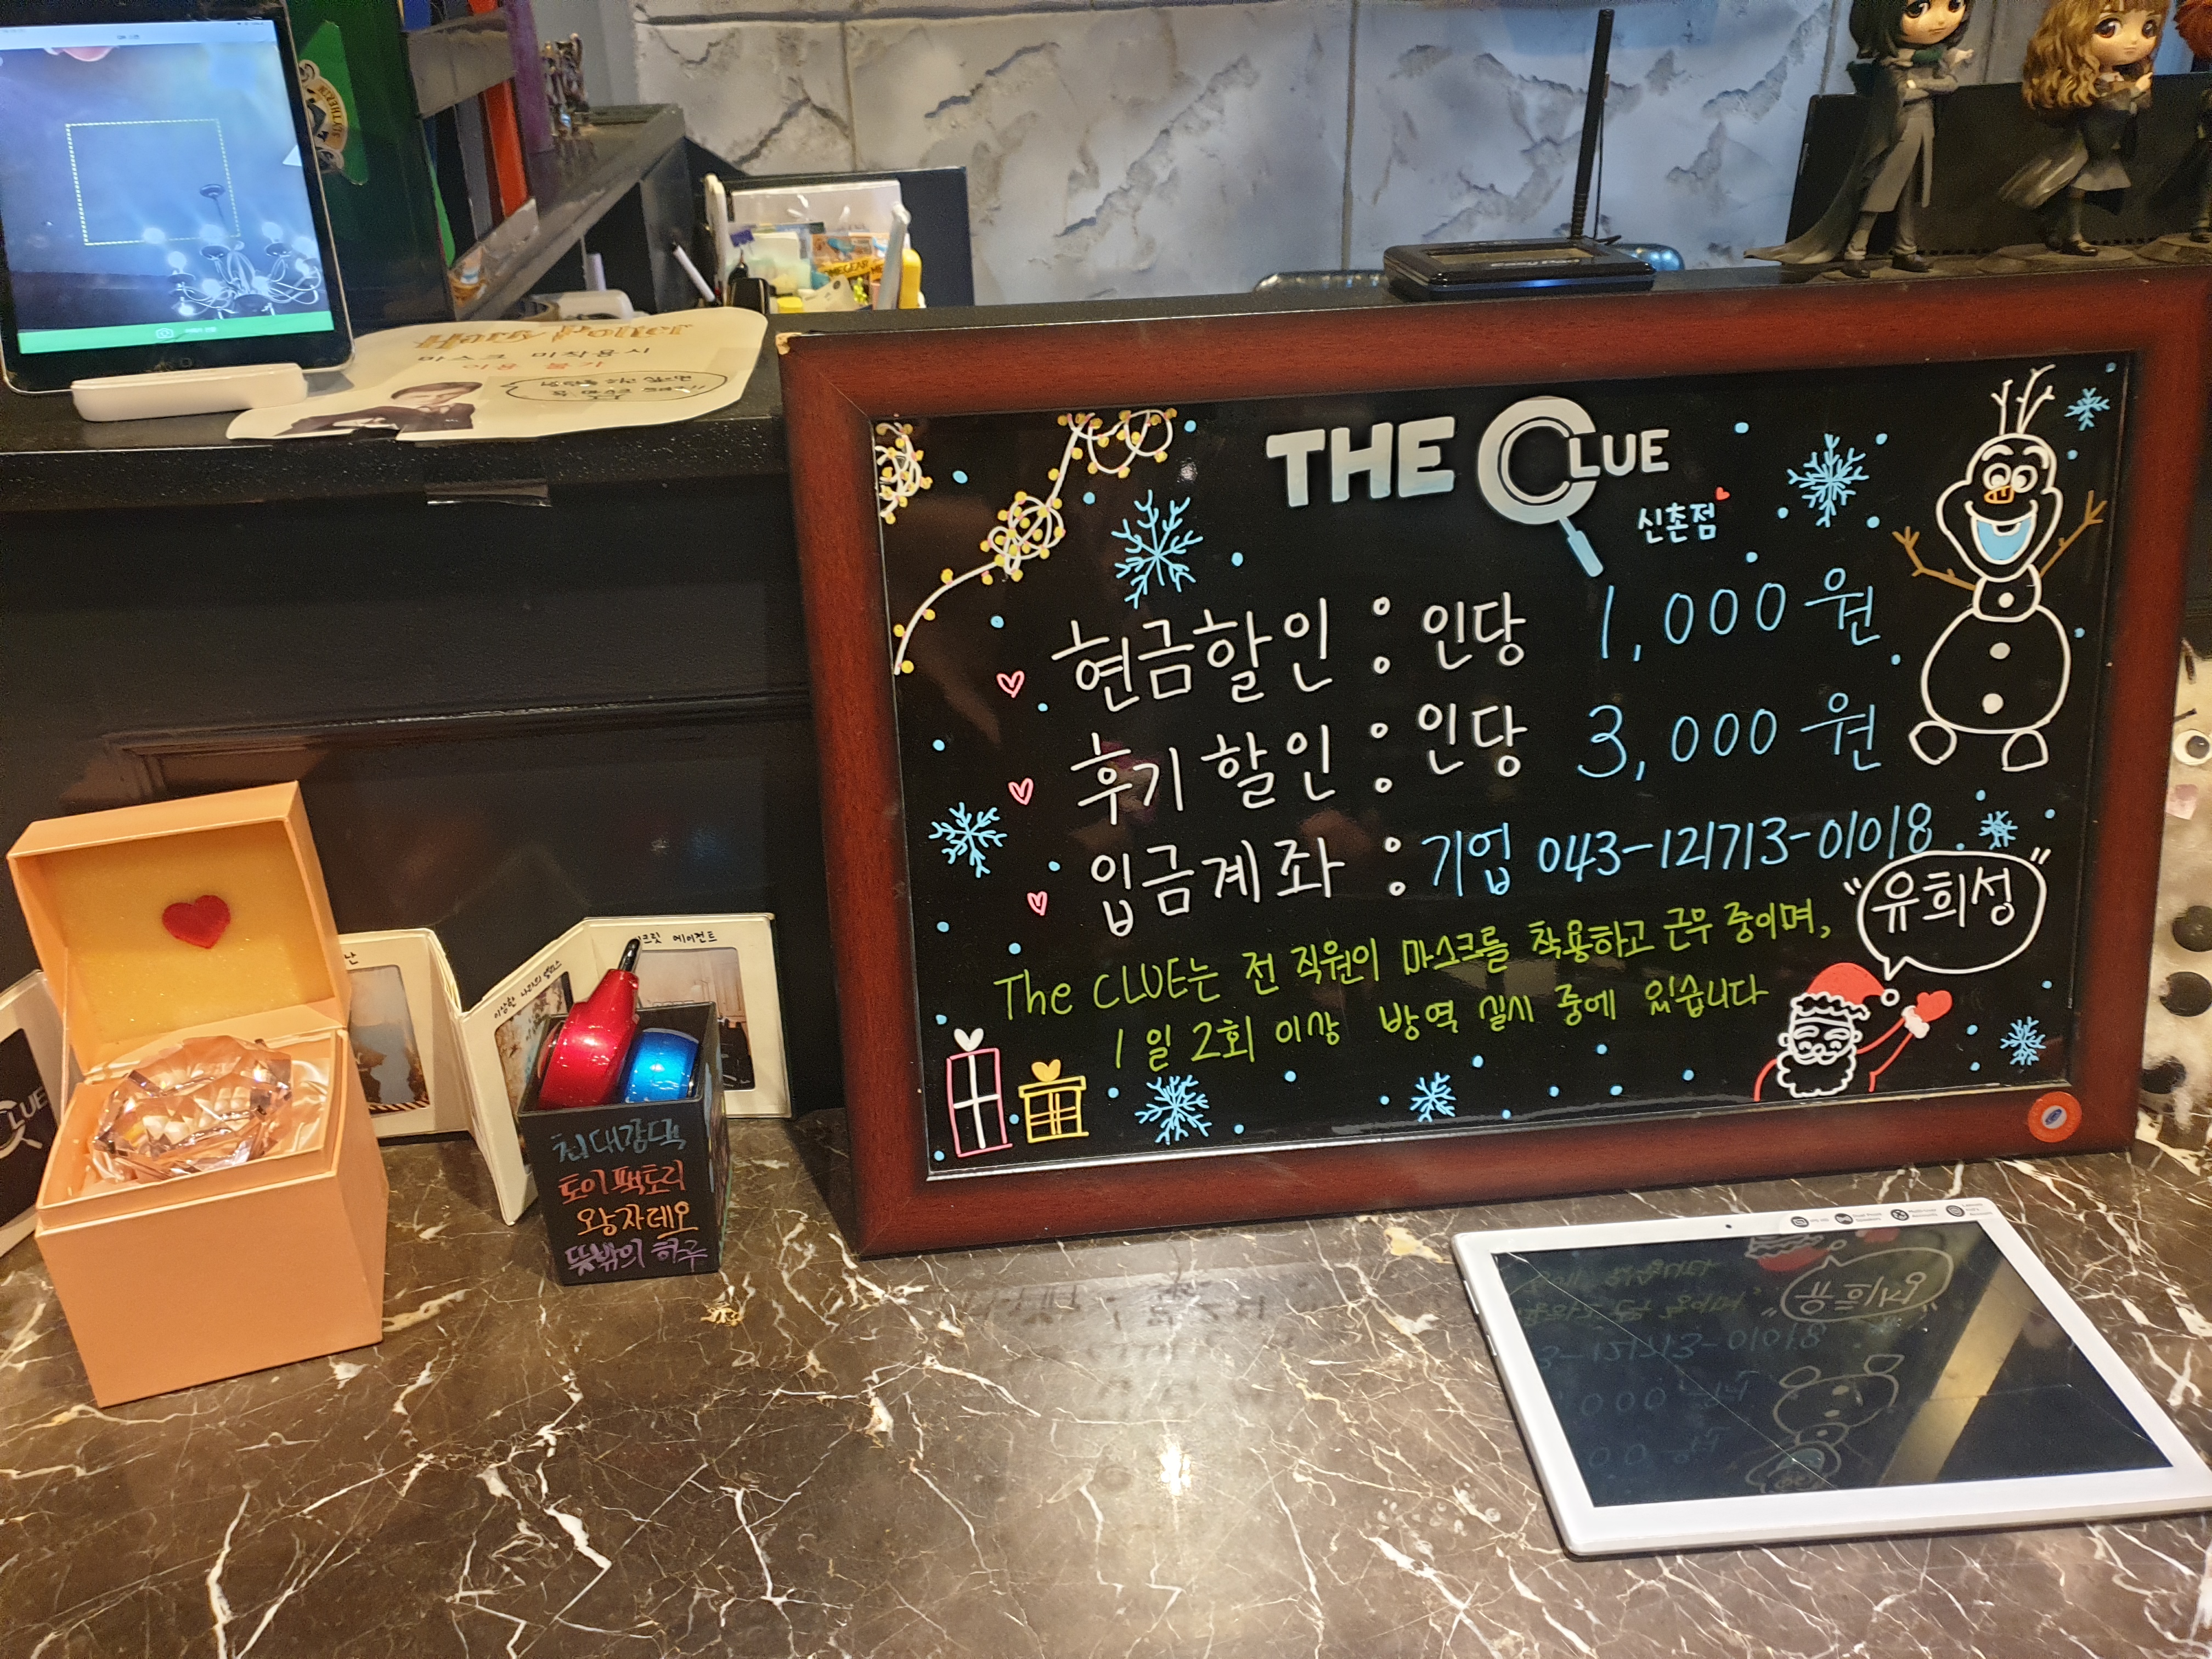 THE CLUE
신촌점
현금할인 : 인당 1,000원
후기할인 : 인당 3,000원
입금계좌 : 기업 043-121713-01018
"유희성"
The CLUE는 전 직원이 마스크를 착용하고 근무 중이며,
1일 2회 이상 방역 실시 중에 있습니다
마스크 미착용시
이용 불가
이상한 나라의 앨리스
에이전트
CLUE
토이팩토리
왕자레오
뜻밖의 하루